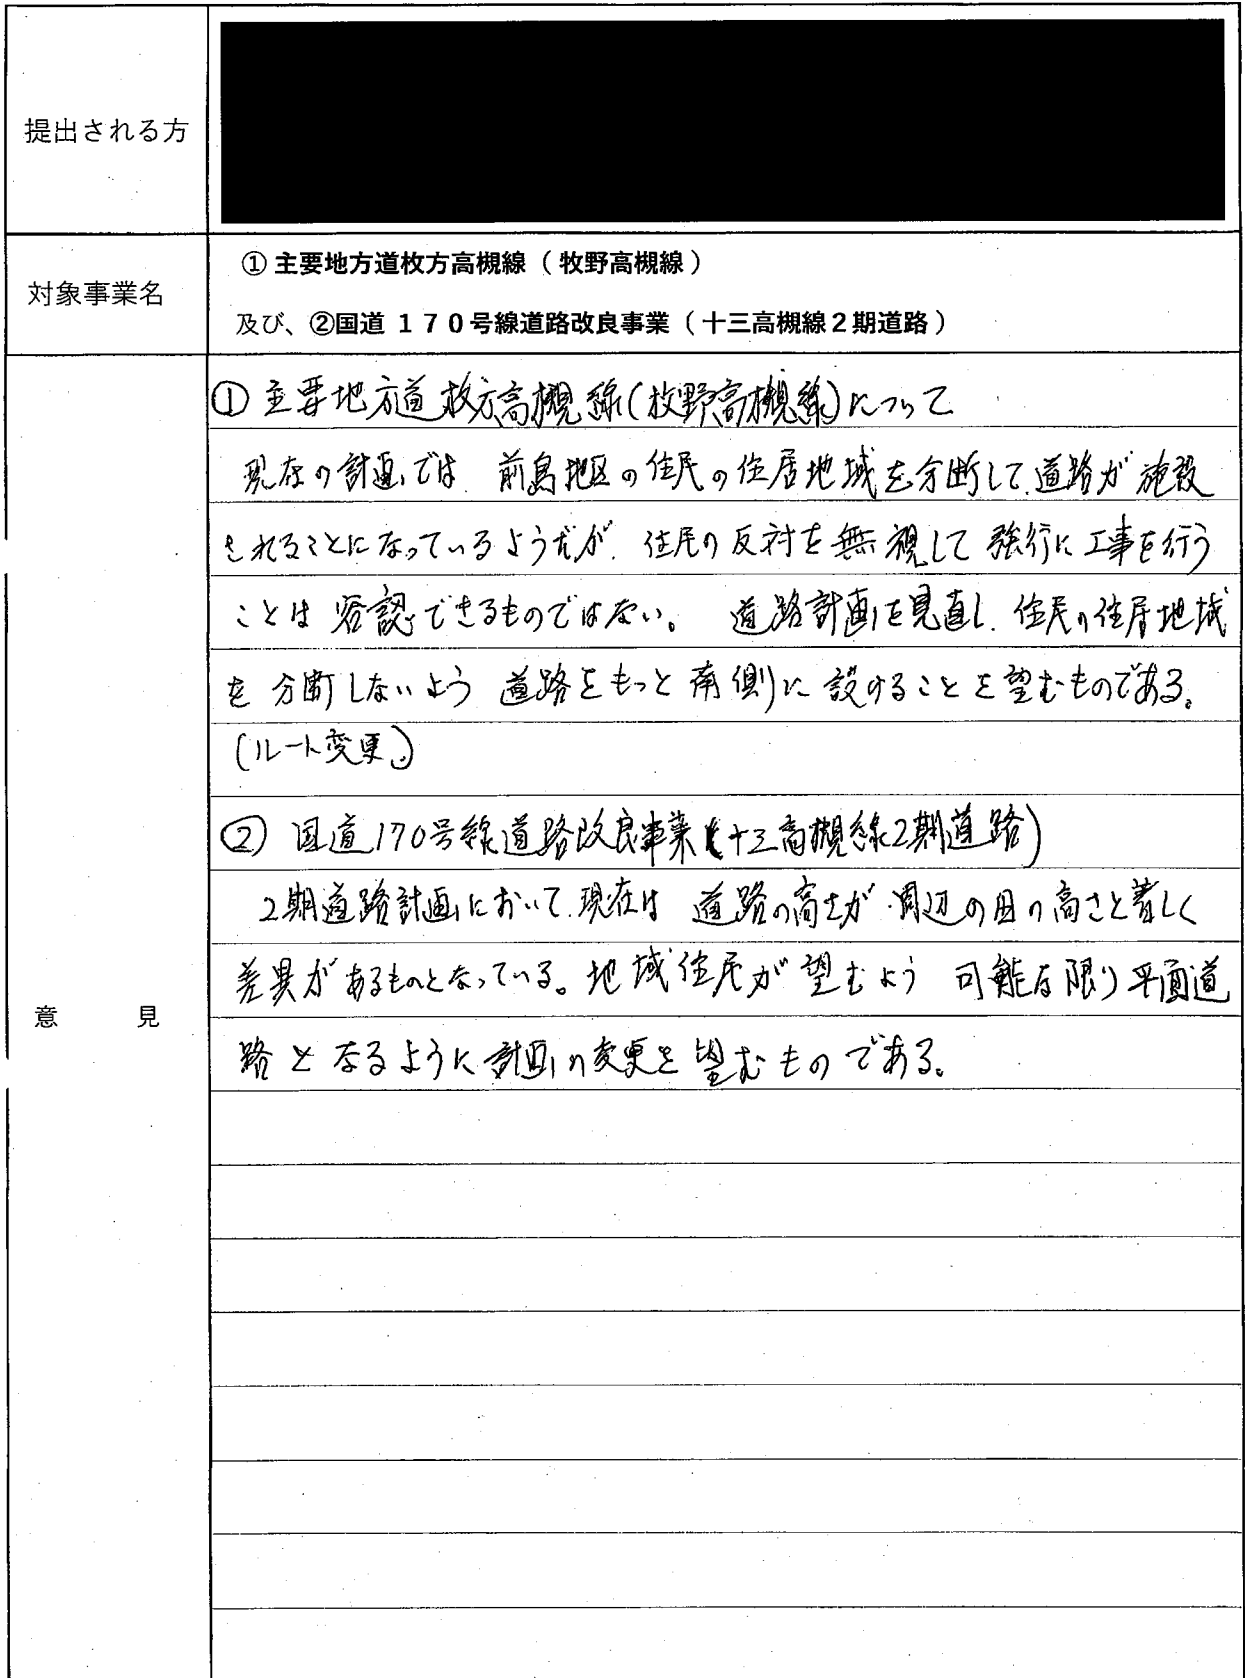 提出される方
対象事業名
① 主要地方道枚方高槻線（牧野高槻線）
及び、②国道１７０号線道路改良事業（十三高槻線２期道路）
意見
① 主要地方道枚方高槻線(牧野高槻線)について
現在の計画では 前島地区の住民の住居地域を分断して、道路が施設
されることになっているようだが、住民の反対を無視して強行に工事を行う
ことは 容認できるものではない。 道路計画を見直し、住民の住居地域
を 分断しないよう 道路をもっと南側に設けることを望むものである。
(ルート変更。)
② 国道170号線道路改良事業(十三高槻線2期道路)
2期道路計画において、現在は 道路の高さが 周辺の田の高さと著しく
差異があるものとなっている。地域住民が望むよう 可能な限り平面道
路となるように計画の変更を望むものである。